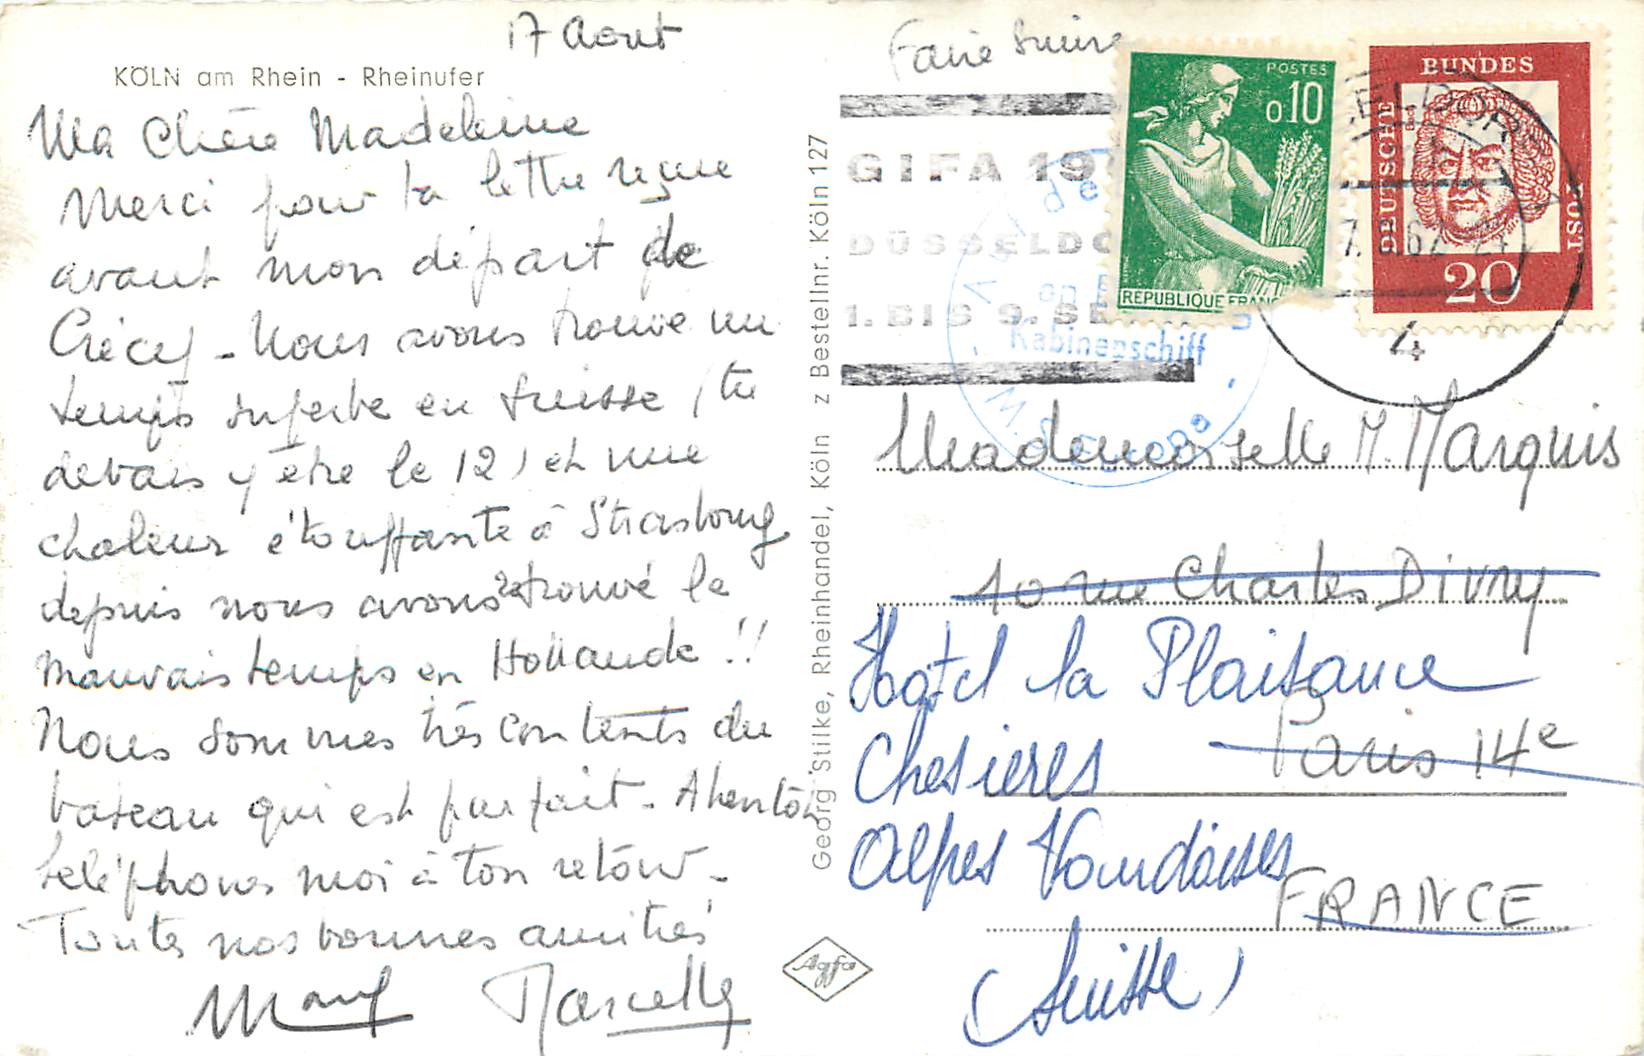 17 Aout
KÖLN am Rhein - Rheinufer
Ma Chère Madeleine
Merci pour ta lettre reçue
avant mon départ de
Crécy - Nous avons trouvé un
temps superbe en Suisse (tu
devais y être le 12) et une
chaleur étouffante à Strasbourg
depuis nous avons retrouvé le
mauvais temps en Hollande !!
Nous sommes très contents du
bateau qui est parfait. A bientôt
téléphones moi à ton retour.
Toutes nos bonnes amitiés
Marcelle
Georg Stilke, Rheinhandel, Köln z Bestellnr. Köln 127
Agfa
Faire suivre
GIFA 19
DÜSSELDO
1. BIS 9. SE
an B
Kabinenschiff
Europa
POSTES
0,10
REPUBLIQUE FRANC
DEUTSCHE
BUNDES
POST
20
ELDORF
4
Mademoiselle M. Marquis
10 rue Charles Divry
Hotel la Plaisance
Paris 14e
Chesieres
Alpes Vaudoises
FRANCE
(Suisse)